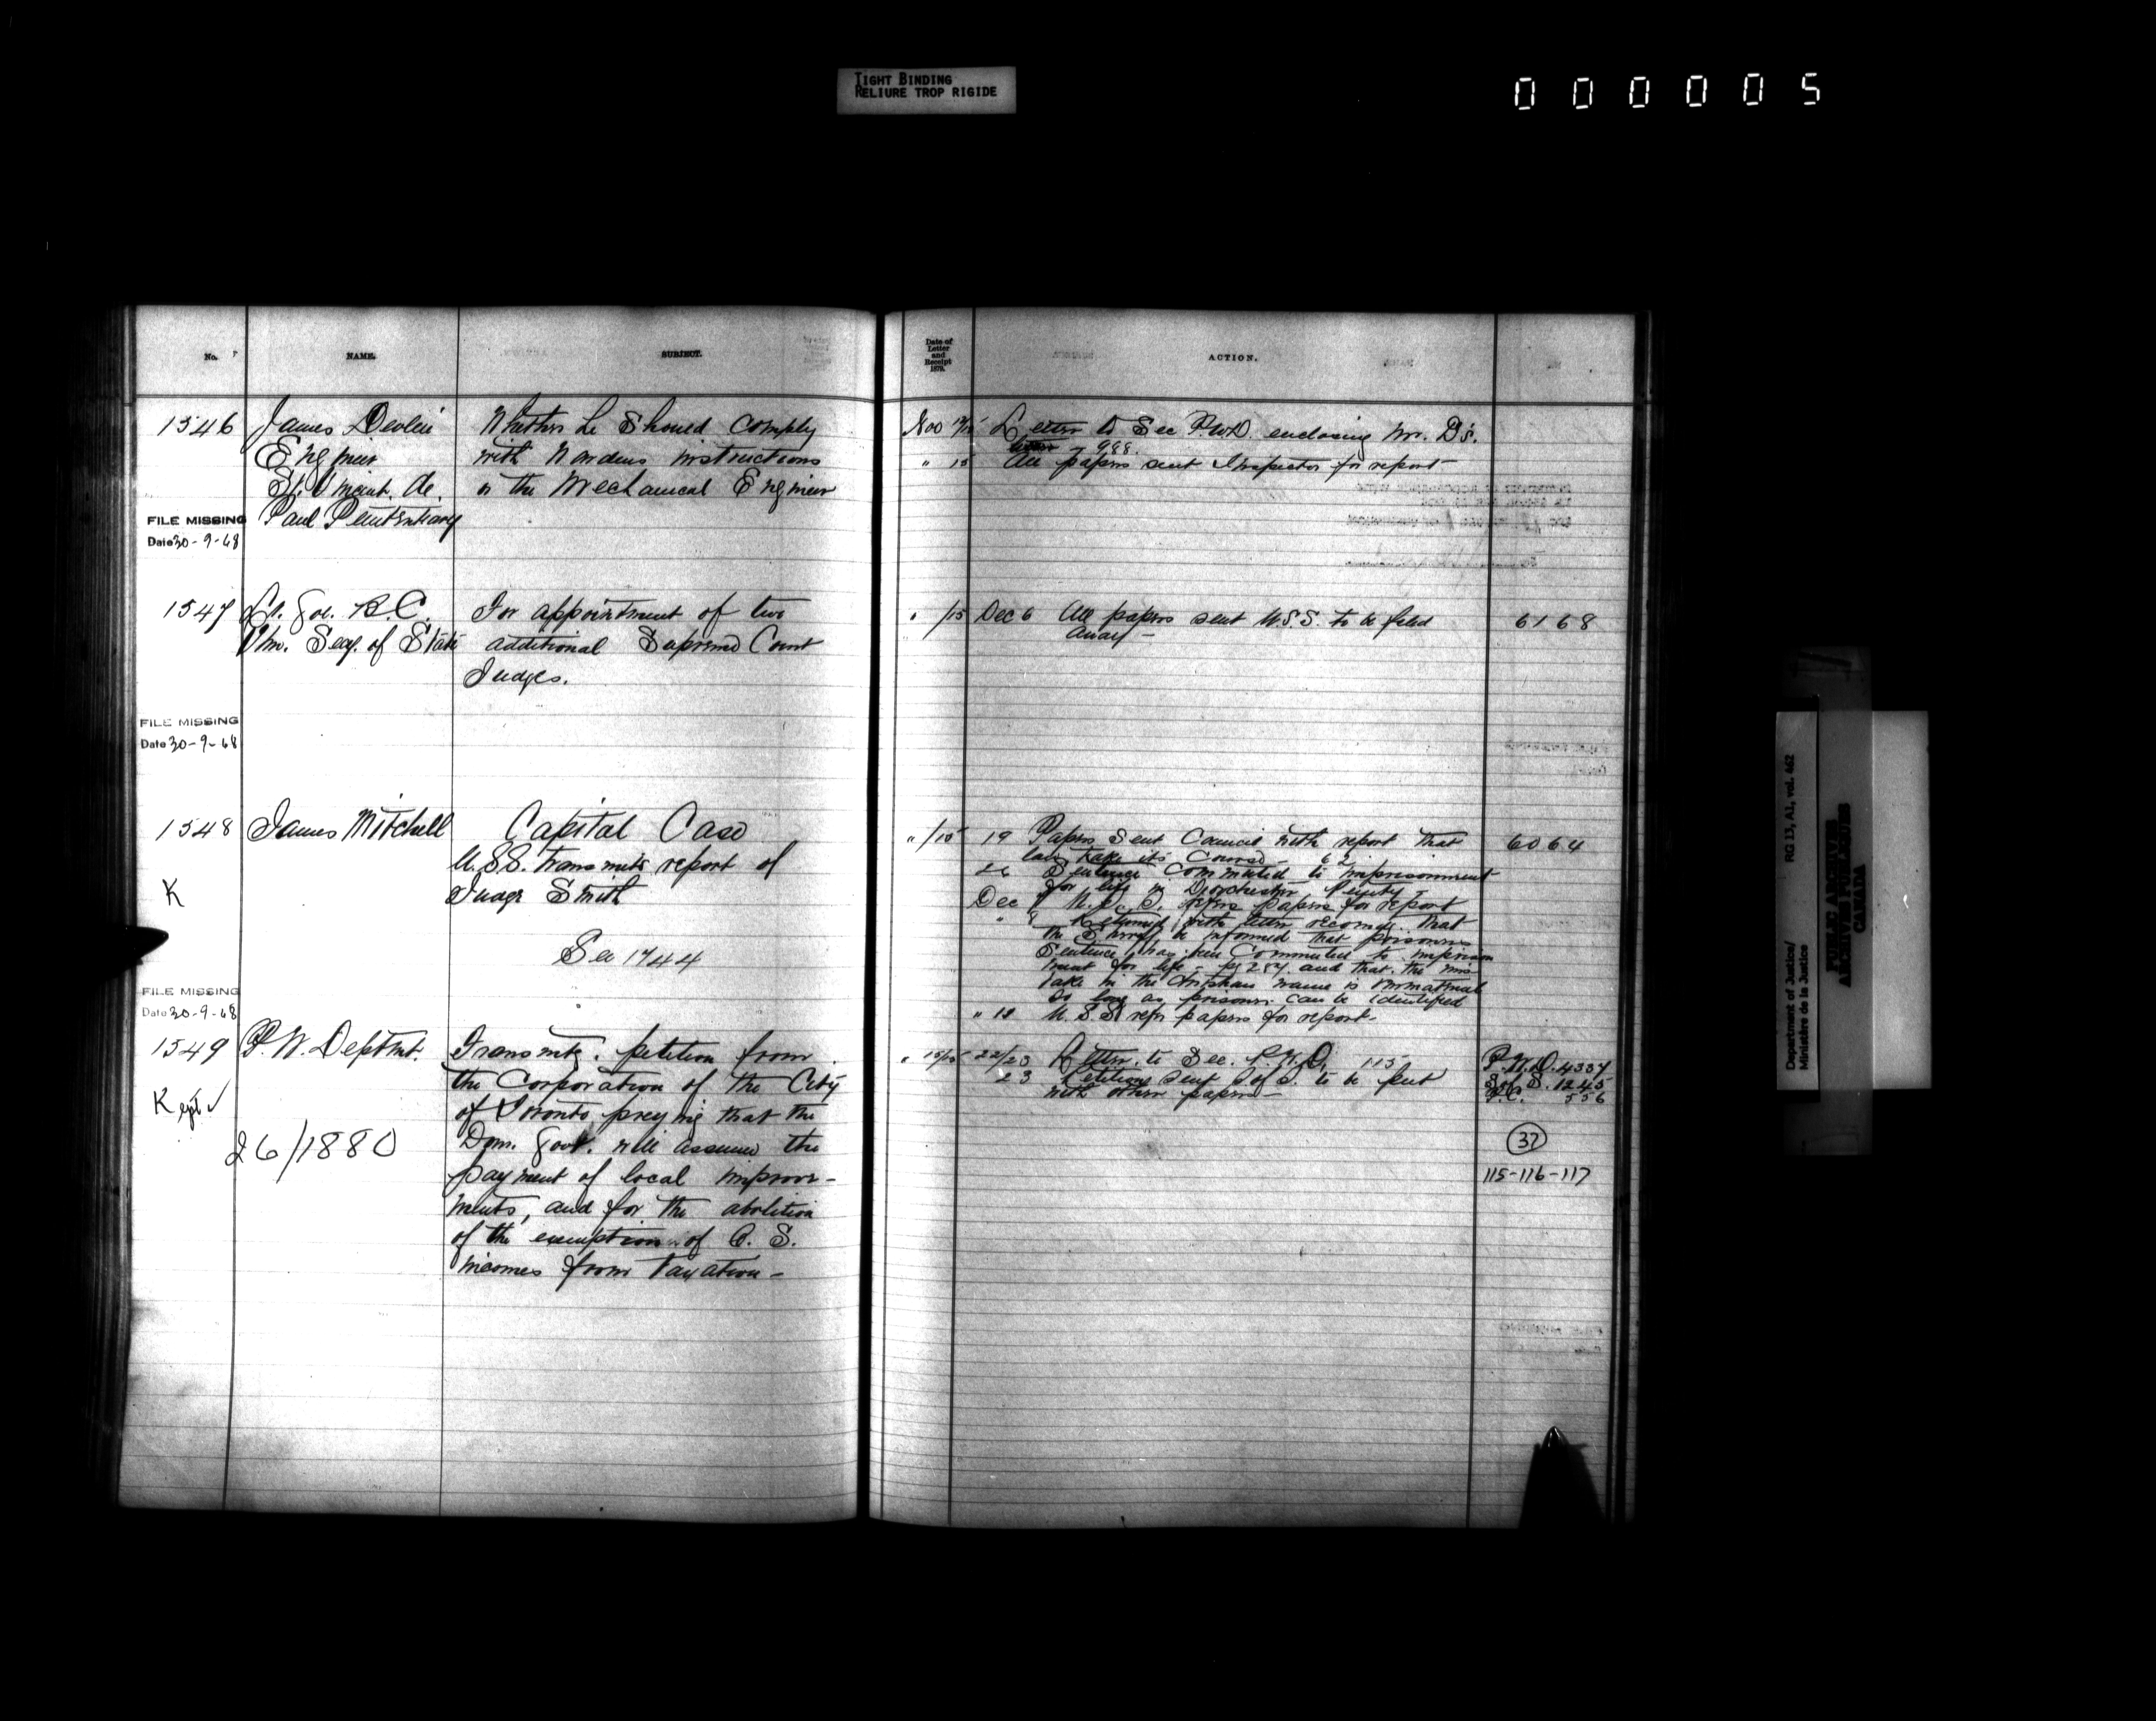 TIGHT BINDING
RELIURE TROP RIGIDE
000005
No.
NAME.
SUBJECT.
1546
James Devlin
Engineer
St. Vincent de
Paul Penitentiary
Whether he should comply
with Wardens instructions
or the Mechanical Engineer
FILE MISSING
Date 30-9-68
1547
Lt. Gov. B.C.
Thro. Secy. of State
For appointment of two
additional Supreme Court
Judges.
FILE MISSING
Date 30-9-68
1548
James Mitchell
Capital Case
U.S.S. transmits report of
Judge Smith
K
See 1744
FILE MISSING
Date 30-9-68
1549
P. W. Deptmt.
Transmts. petition from
the Corporation of the City
of Toronto praying that the
Dom. Govt. will assume the
payment of local improve-
ments, and for the abolition
of the exemption of C. S.
incomes from taxation -
Kept ✓
26/1880
Date of
Letter
and
Receipt
1879.
ACTION.
Nov Letter to Sec P.W.D. enclosing Mr. D's.
988.
" 15 All papers sent Inspector for report -
" /15 Dec 6 All papers sent U.S.S. to be filed
away -
6168
" /15 19 Papers sent Council with report that
law take its course - 62
26 Sentence commuted to imprisonment
for life in Dorchester Penity -
Dec U.S.S. refers papers for report
" 8 Returned with letter recomdg. that
the Sheriff be informed that prisoners
sentence has been commuted to imprison
ment for life - pg 254 and that the mis
take in the Christian name is immaterial
so long as prisoner can be identified
" 18 U.S.S. refrs papers for report -
6064
" 15/15 22/23 Letter to Sec. P.W.D. 115
23 Petition sent S of S. to be put
with other papers -
P.W.D. 4337
S. of S. 1245
P.C. 556
37
115-116-117
Department of Justice/
Ministère de la Justice
RG 13, A1, vol. 462
PUBLIC ARCHIVES
ARCHIVES PUBLIQUES
CANADA